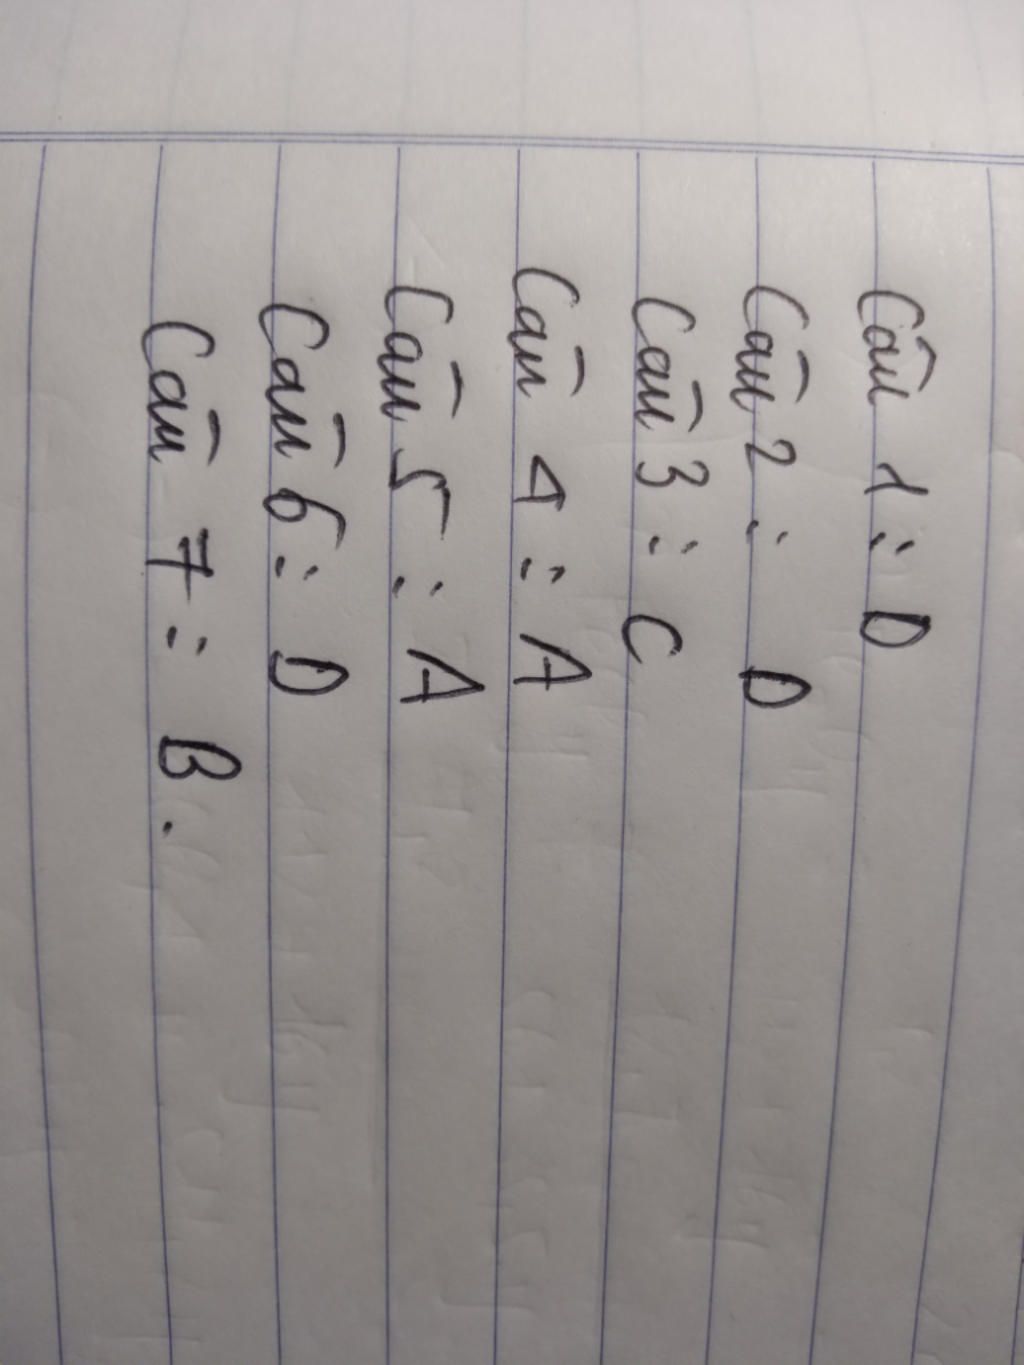 Câu 1 : D
Câu 2 : D
Câu 3 : C
Câu 4 : A
Câu 5 : A
Câu 6 : D
Câu 7 : B.